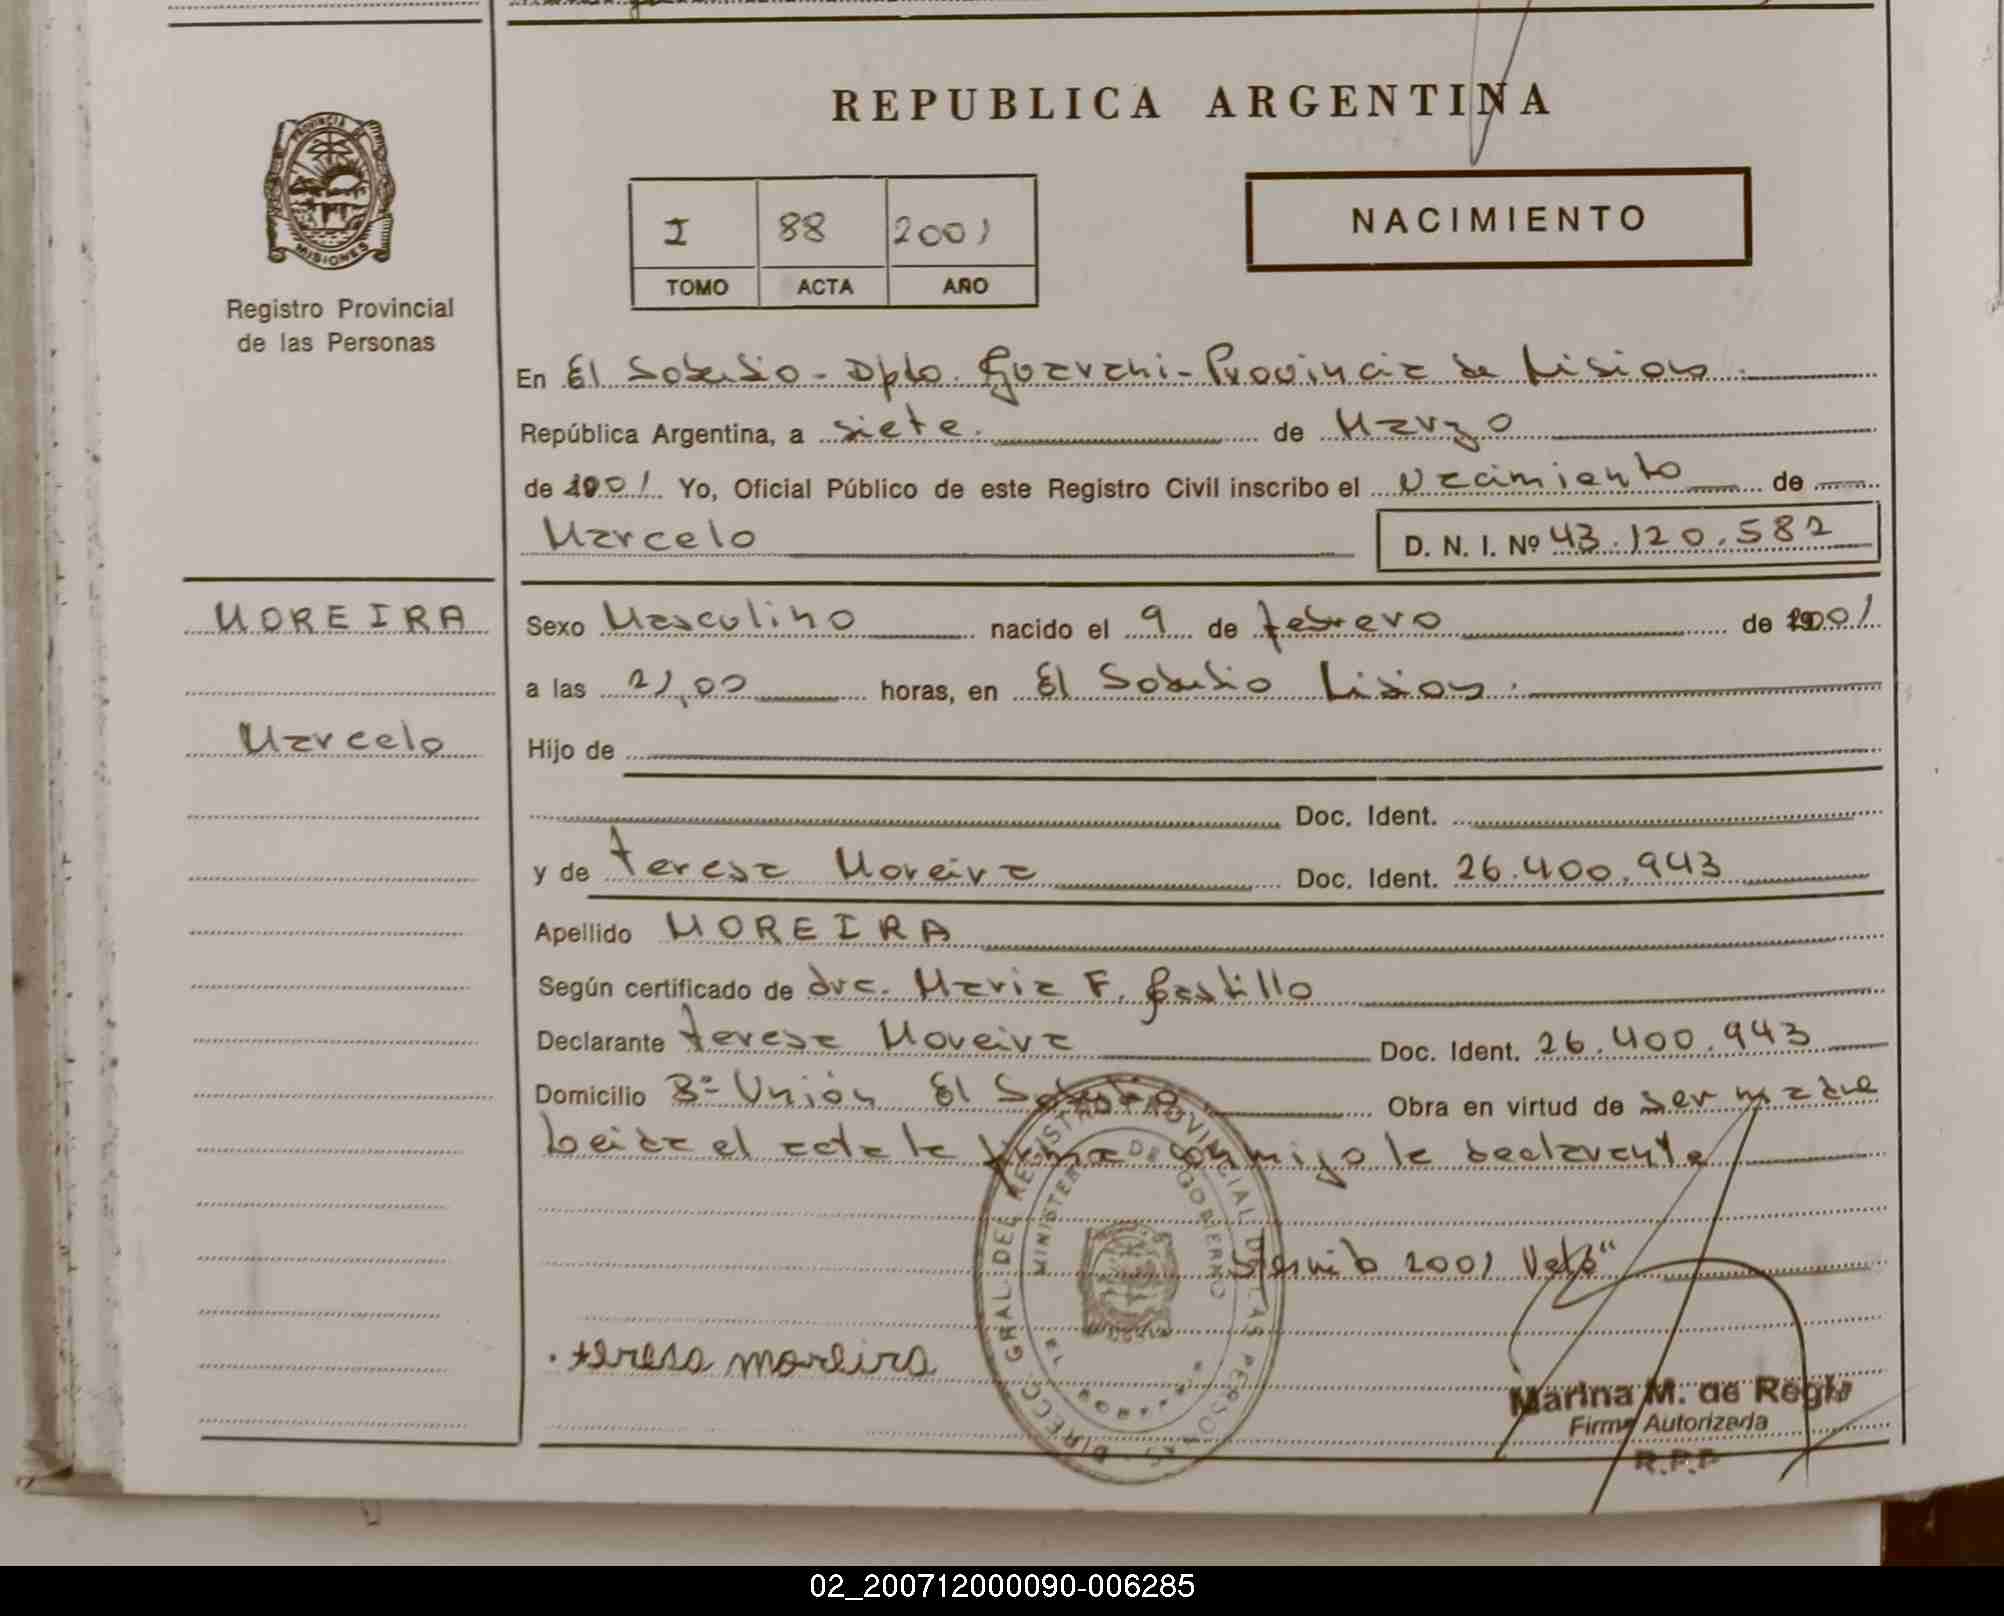 REPUBLICA ARGENTINA
PROVINCIA DE
MISIONES
Registro Provincial
de las Personas
I 88 2001
TOMO ACTA AÑO
NACIMIENTO
En El Soberbio - Dpto. Guarani - Provincia de Misiones
República Argentina, a siete de Marzo
de 2001 Yo, Oficial Público de este Registro Civil inscribo el nacimiento de
Marcelo D. N. I. Nº 43.120.582
MOREIRA
Marcelo
Sexo Masculino nacido el 9 de febrero de 2001
a las 21,00 horas, en El Soberbio Misiones.
Hijo de
Doc. Ident.
y de teresa Moreira Doc. Ident. 26.400.943
Apellido MOREIRA
Según certificado de dra. Maria F. Castillo
Declarante teresa Moreira Doc. Ident. 26.400.943
Domicilio Bº Unión El Soberbio Obra en virtud de ser madre
Leida el acta la firma conmigo la declarante
2001 Vale"
teresa moreira
DIRECC. GRAL. DEL REGISTRO PROVINCIAL DE LAS PERSONAS
MINISTERIO DE GOBIERNO
Marina M. de Regis
Firma Autorizada
R.P.P
02_200712000090-006285